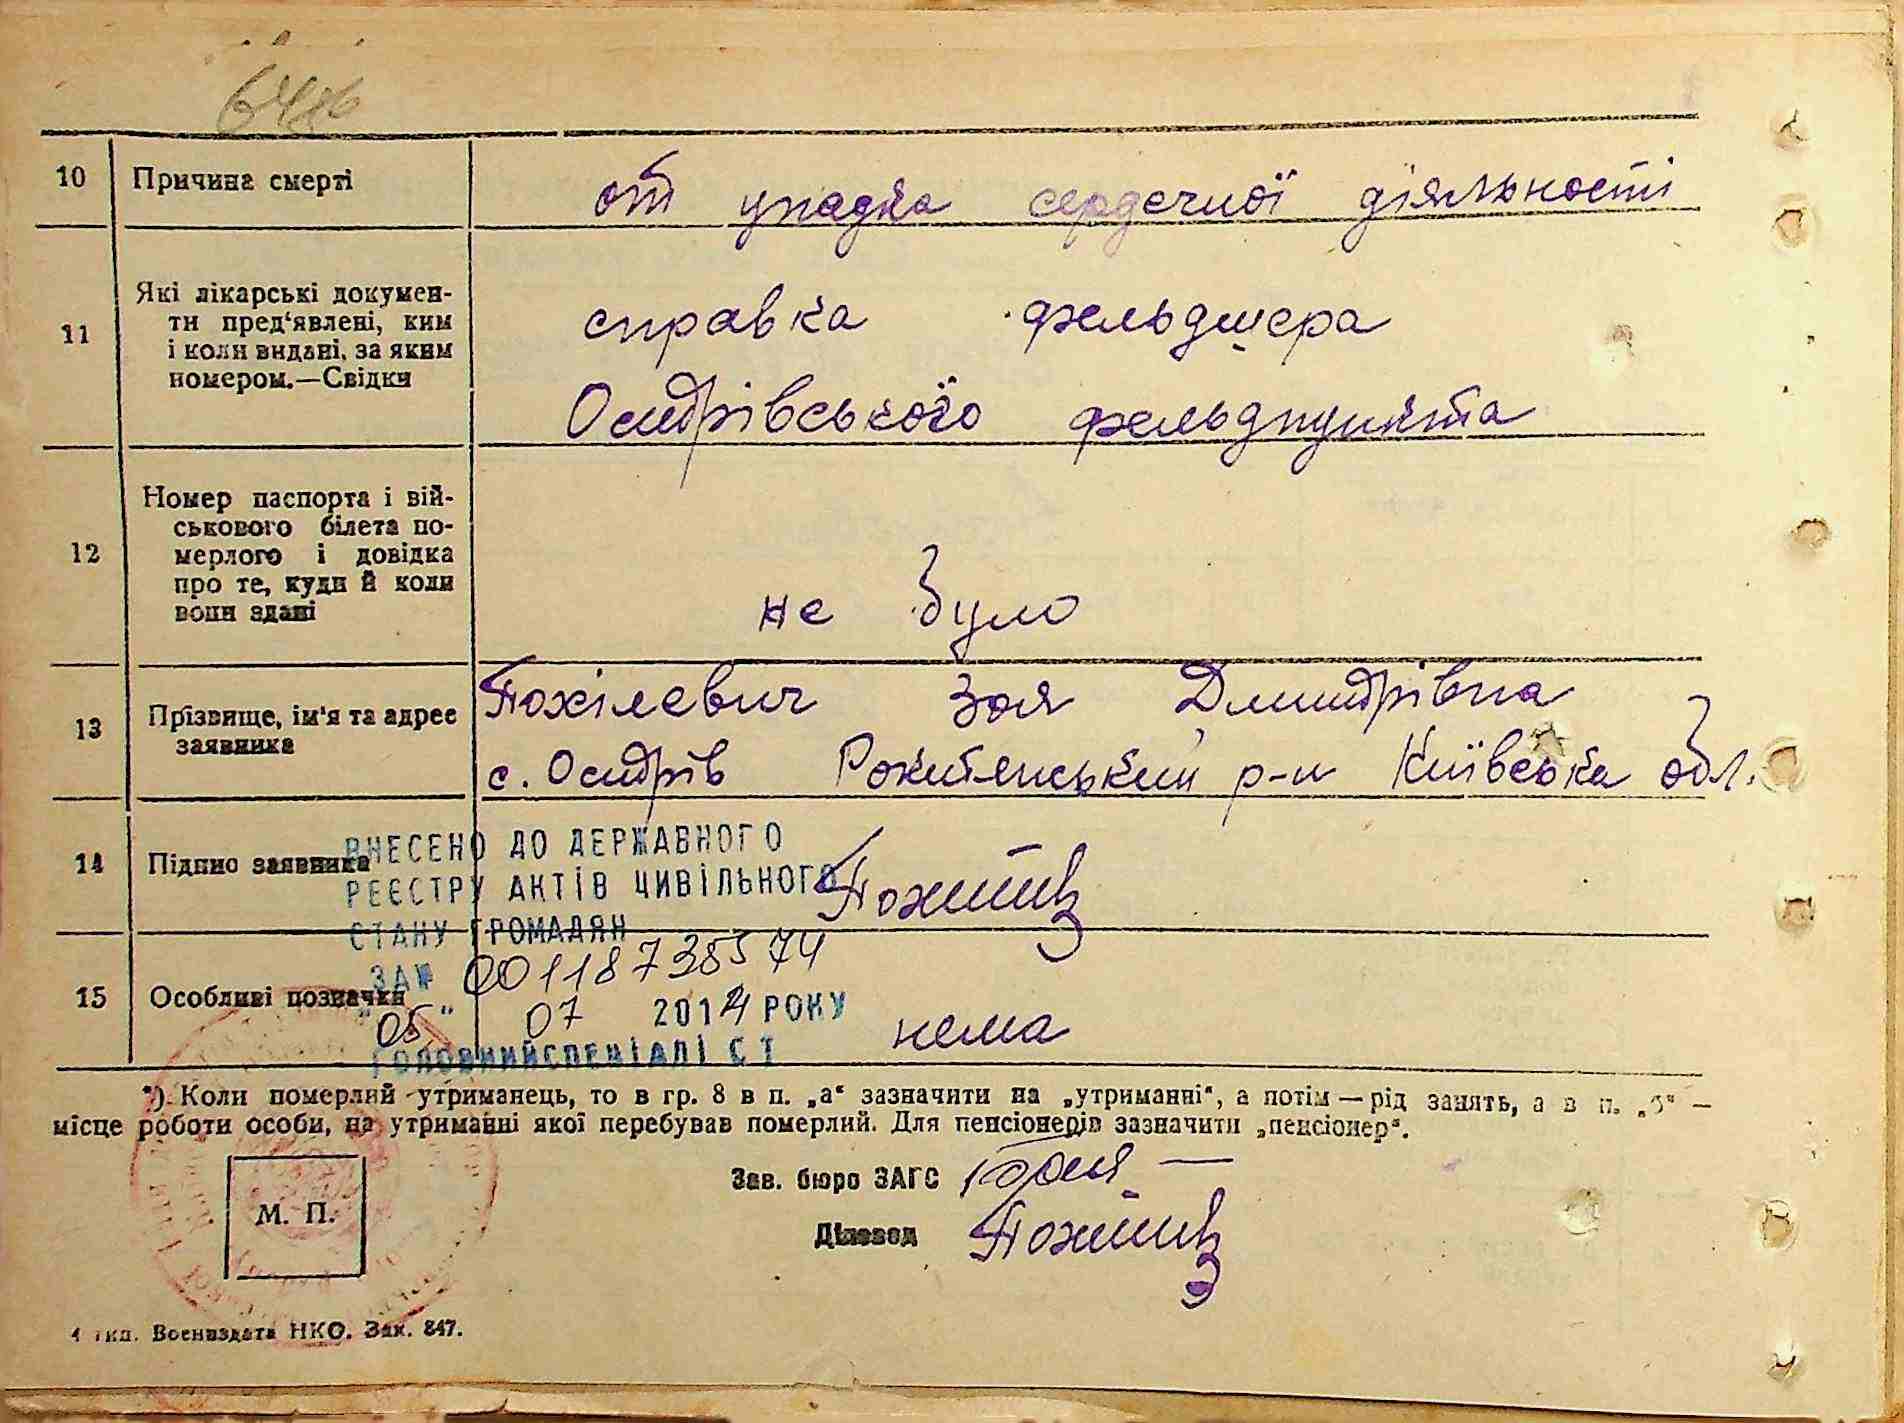 10 Причина смерті
от упадка сердечної діяльності
11 Які лікарські докумен-
ти пред‘явлені, ким
і коли видані, за яким
номером.—Свідки
справка фельдшера
Острівського фельдпункта
12 Номер паспорта і вій-
ськового білета по-
мерлого і довідка
про те, куди й коли
вони здані
не було
13 Прізвище, ім‘я та адрес
заявника
Похілевич Зоя Дмитрівна
с. Острів Рокитянський р-н Київська обл.
14 Підпис заявника
ВНЕСЕНО ДО ДЕРЖАВНОГО
РЕЄСТРУ АКТІВ ЦИВІЛЬНОГО
СТАНУ ГРОМАДЯН
ЗА № 00118738574
15 Особливі позначки
"05" 07 2014 РОКУ
нема
ГОЛОВНИЙ СПЕЦІАЛІСТ
*) Коли померлий утриманець, то в гр. 8 в п. „а“ зазначити на „утриманні“, а потім — рід занять, а в п. „б“ —
місце роботи особи, на утриманні якої перебував померлий. Для пенсіонерів зазначити „пенсіонер“.
Зав. бюро ЗАГС
М. П.
Діловод
тип. Воениздата НКО. Зак. 847.